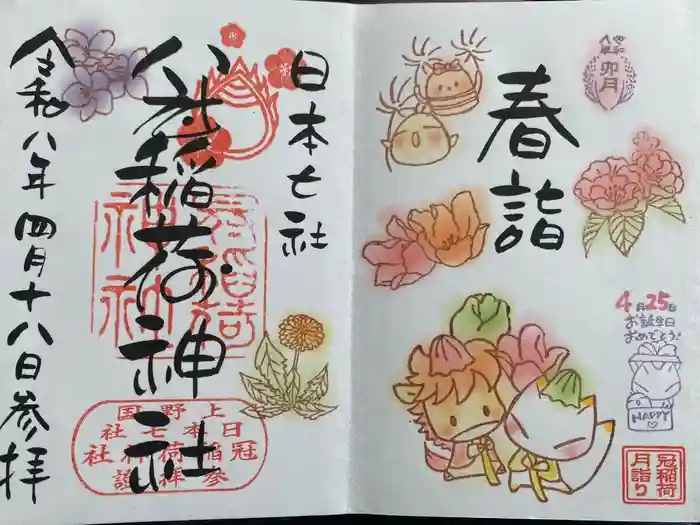 春詣
令和八年
卯月
4月25日
お誕生日
おめでとう!
HAPPY
冠稲荷
月詣り
日本七社
冠稲荷神社
上野国
日本七社
冠稲荷神社
参拝
令和八年四月十八日参拝